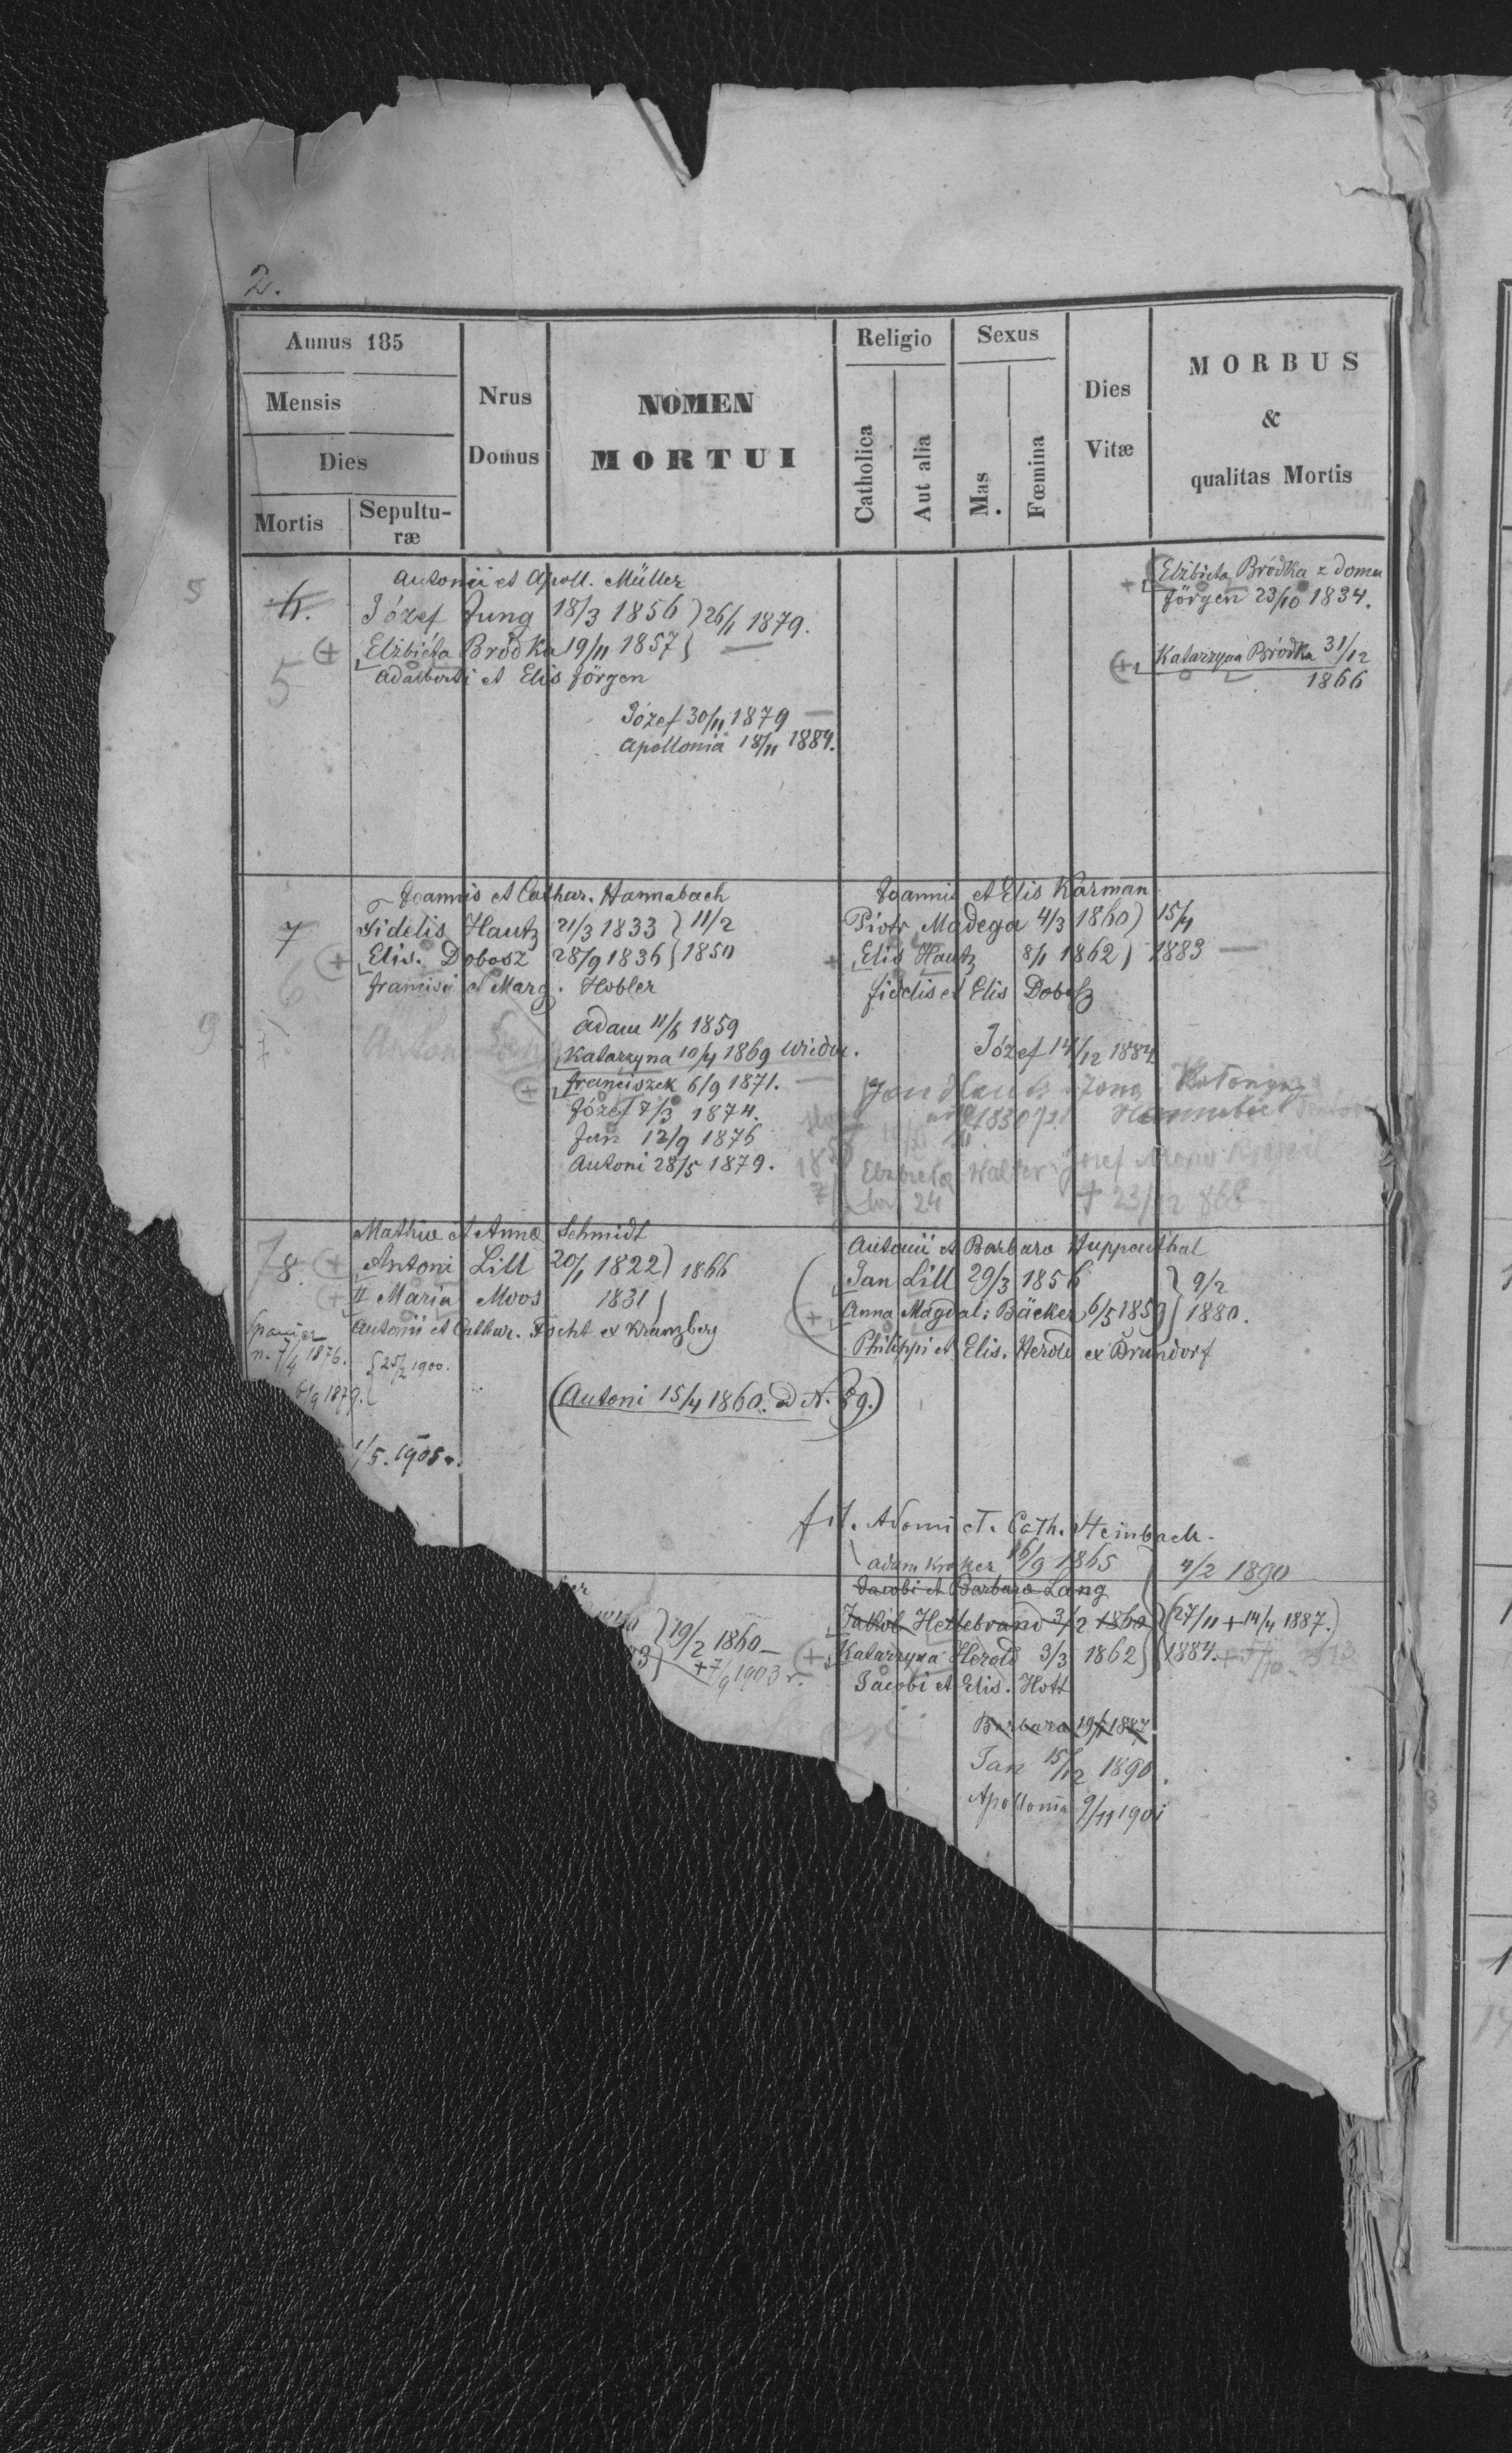 2.
Annus 185
Mensis
Dies
Mortis
Sepultu-
ræ
Nrus
Domus
NOMEN
MORTUI
Religio
Catholica
Aut alia
Sexus
Mas
Fœmina
Dies
Vitæ
MORBUS
&
qualitas Mortis
5
Antonii et Apoll. Müller
Józef Jung 18/3 1856 } 26/1 1879.
Elżbieta Bródka 19/11 1857 }
5
Adalberti et Elis Jörgen
Józef 30/11 1879
Apollonia 18/11 1884.
Elżbieta Bródka z domu
Jörgen 23/10 1834.
Katarzyna Bródka 31/12
1866
Joannis et Cathar. Hannabach
7 Fidelis Hautz 21/3 1833 } 11/2
Elis. Dobosz 28/9 1836 } 1850
6
Francisci et Marg. Hobler
9
Adam 11/6 1859
Katarzyna 10/4 1869 Wiedw.
Franciszek 6/9 1871.
Józef 7/3 1874.
Jan 12/9 1876
Antoni 28/5 1879.
Joannis et Elis Karman
Piotr Madega 4/3 1860 } 15/4
Elis Hautz 8/1 1862 } 1883
Fidelis et Elis Dobosz
Józef 14/12 1884
Jan Hautz żona Katarzyna
1830
Elżbieta Walter Józef
24 + 23/12 868
Mathiæ et Annæ Schmidt
8. Antoni Lill 20/1 1822 } 1866
II Maria Moos 1831 }
Antonii et Cathar. Focht ex Kranzberg
n. 7/4 1876. { 25/2 1900.
6/9 1879.
1/5. 1905 r.
(Antoni 15/4 1860. ad N. 89.)
Antonii et Barbara Huppenthal
Jan Lill 29/3 1856 } 9/2
Anna Magdal: Bäcker 6/5 1859 } 1880.
Philippi et Elis. Herold ex Brundorf
fil. Adami et. Cath. Steinbach.
Adam Kroker 16/9 1865 4/2 1890
Jacobi et Barbara Lang
Jakób Hellebrand 3/2 1860 } (27/11 + 14/4 1887.)
Katarzyna Herold 3/3 1862 } 1884.
Jacobi et Elis. Hott
} 19/2 1860 –
3 } + 7/9 1903 r.
Barbara 19/1 1887
Jan 15/12 1890.
Apollonia 9/11 1901